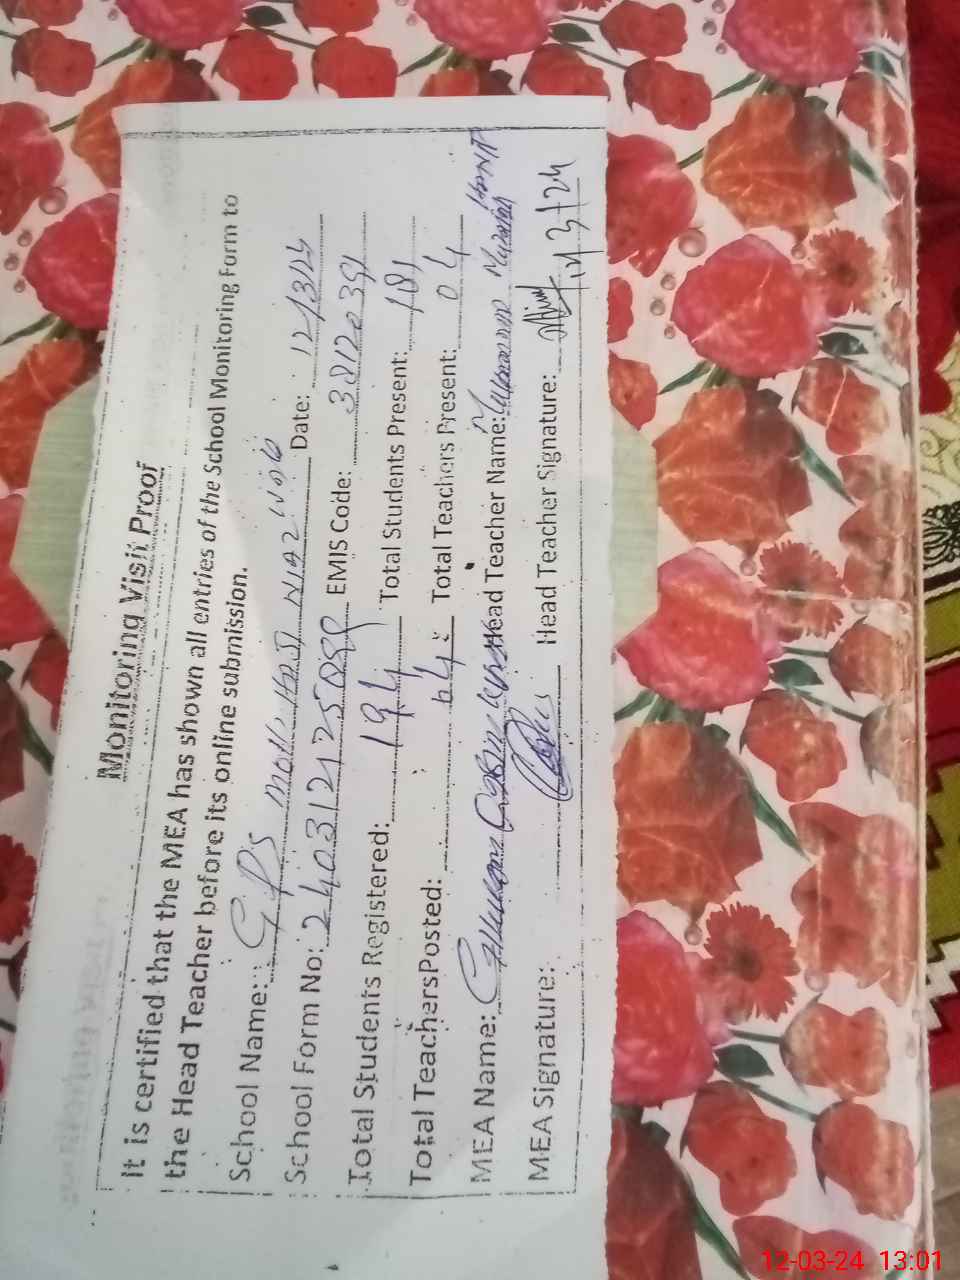 Monitoring Visit Proof
It is certified that the MEA has shown all entries of the School Monitoring Form to
the Head Teacher before its online submission.
School Name: GPS Moh: Haji Niaz Date: 12/3/24
School Form No: EMIS Code:
Total Students Registered: 194 Total Students Present: 181
Total Teachers Posted: 04 Total Teachers Present: 04
MEA Name: Head Teacher Name: Muhammad
MEA Signature: Head Teacher Signature: 12/3/24
12-03-24 13:01